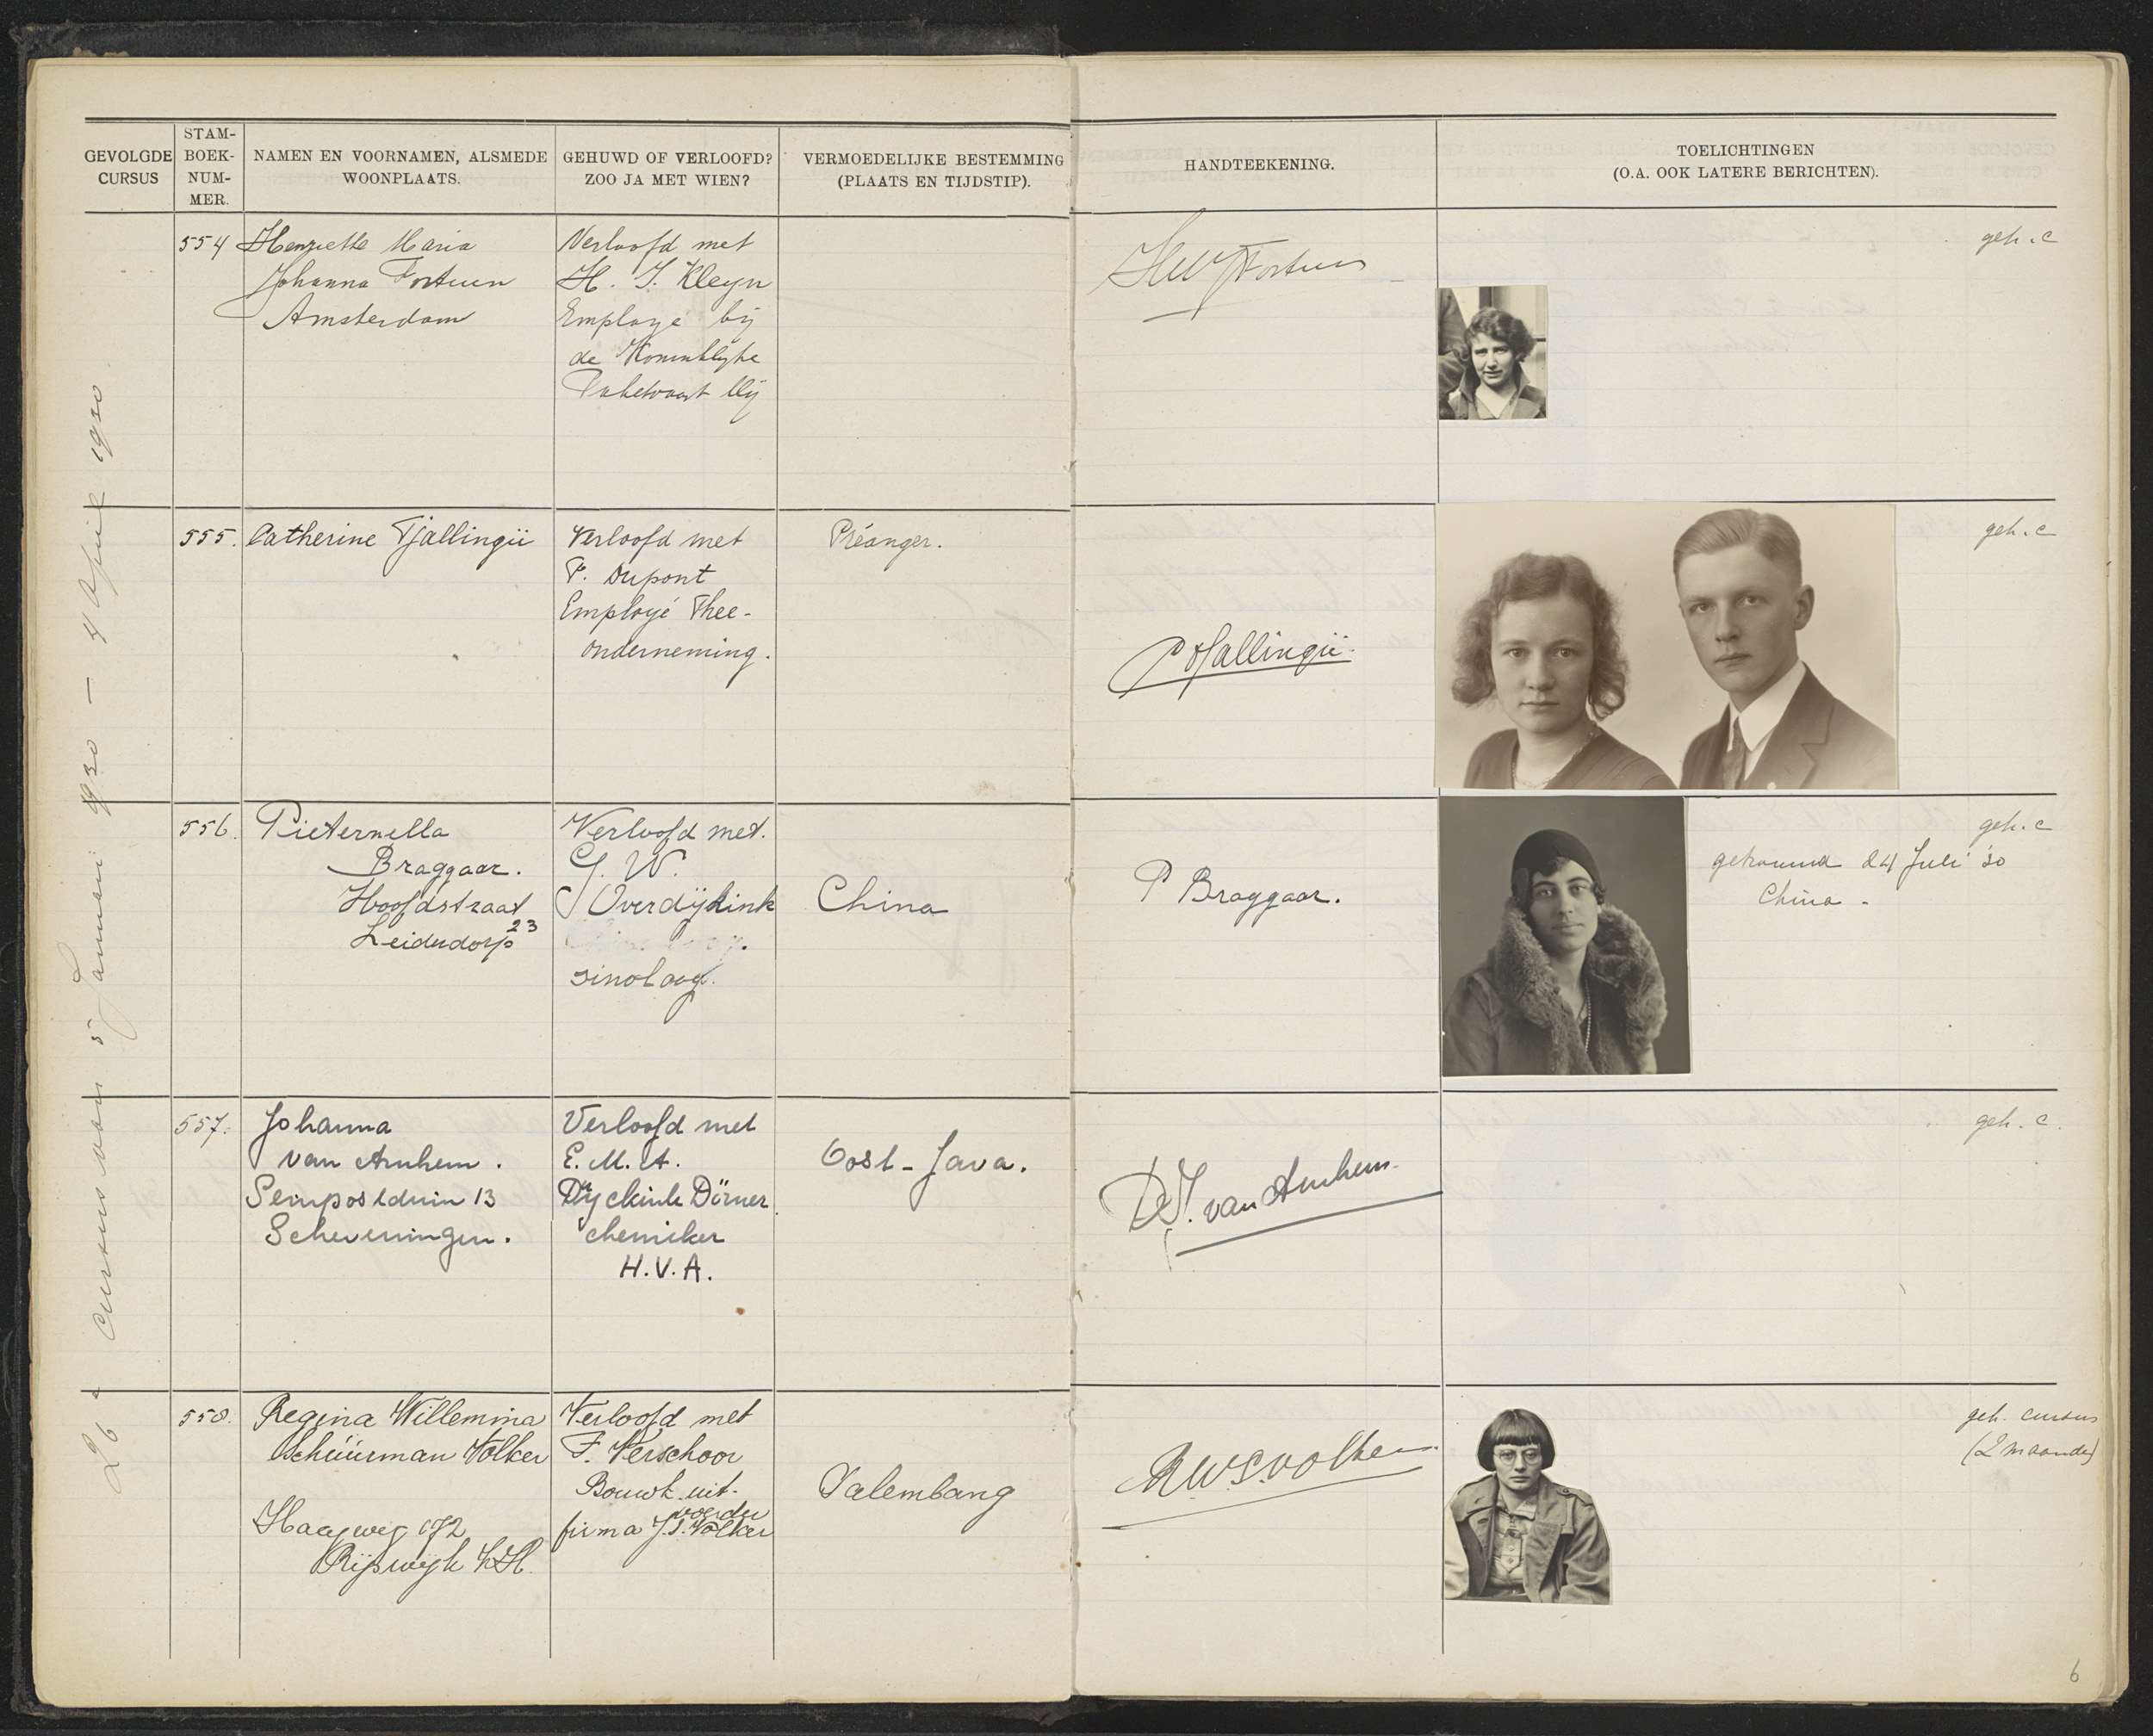 GEVOLGDE
CURSUS
STAM-
BOEK-
NUM-
MER.
NAMEN EN VOORNAMEN, ALSMEDE
WOONPLAATS.
GEHUWD OF VERLOOFD?
ZOO JA MET WIEN?
VERMOEDELIJKE BESTEMMING
(PLAATS EN TIJDSTIP).
HANDTEEKENING.
TOELICHTINGEN
(O.A. OOK LATERE BERICHTEN).
26e Cursus van 5 Januari 1930 — 4 April 1930.
554
Henriette Maria
Johanna Fortuin
Amsterdam
Verloofd met
H. J. Kleyn
Employé bij
de Koninklijke
Paketvaart Mij
HMJ Fortuin
geh. c
555.
Catherine Tjallingii
Verloofd met
P. Dupont
Employé Thee-
onderneming.
Préanger.
C Tjallingii.
geh. c
556.
Pieternella
Braggaar.
Hoofdstraat
23
Leiderdorp
Verloofd met.
G. W.
Overdijkink
sinoloog.
China
P Braggaar.
geh. c
getrouwd 24 Juli '30
China -
557.
Johanna
van Arnhem.
Seinpostduin 13
Scheveningen.
Verloofd met
E. M. A.
Dyckink Dörner
chemiker
H.V.A.
Oost-Java.
D.J. van Arnhem.
geh. c.
558.
Regina Willemina
Schüürman Volker
Haagweg 172
Rijswijk Z.H.
Verloofd met
F. Verschoor
Bouwk. uit-
voerder
firma J.P. Volker
Palembang
RWSVolker
geh. cursus
(2 maanden)
6